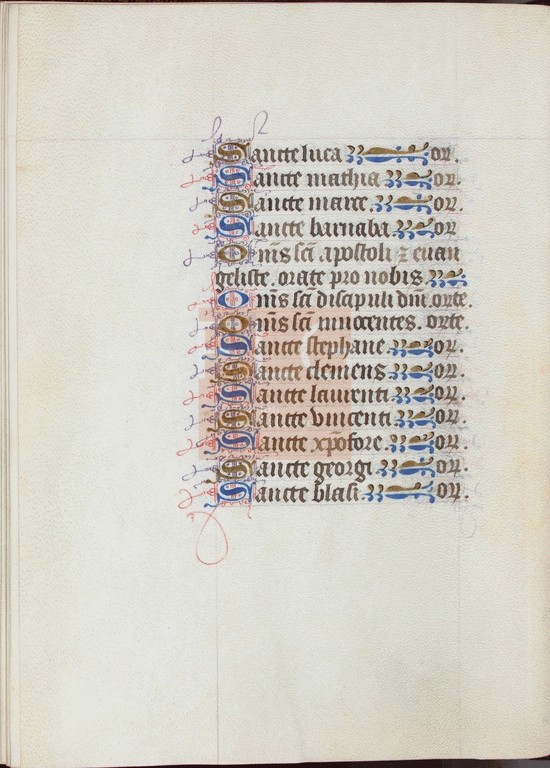 Sancte luca or.
Sancte mathia or.
Sancte marce. or.
Sancte barnaba. or.
Om̄s sc̄i apostoli ⁊ euan
geliste. orate pro nobis.
Om̄s sc̄i discipuli dn̄i. orte.
Om̄s sc̄i innocentes. orte.
Sancte stephane. or.
Sancte clemens or.
Sancte laurenti or.
Sancte vincenti or.
Sancte xp̄ofore. or.
Sancte georgi or.
Sancte blasi. or.